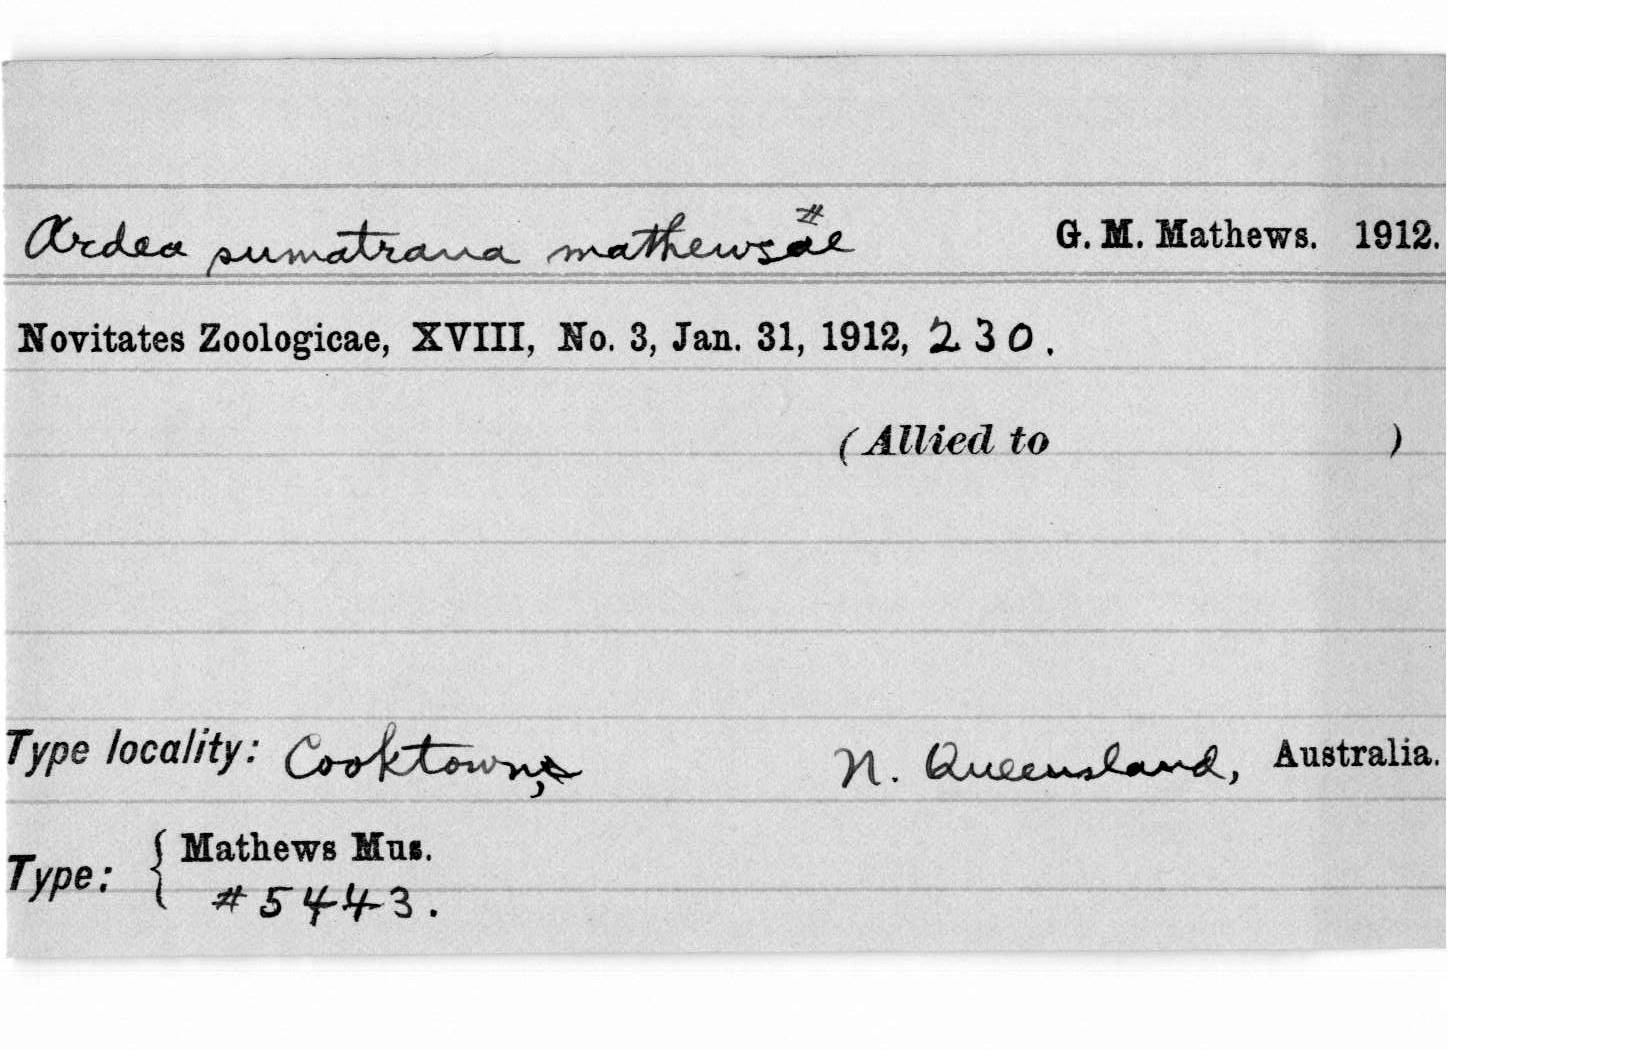 Ardea sumatrana mathewsae # G. M. Mathews. 1912.
Novitates Zoologicae, XVIII, No. 3, Jan. 31, 1912, 230.
(Allied to )
Type locality: Cooktown, N. Queensland, Australia.
Type: { Mathews Mus.
#5443.